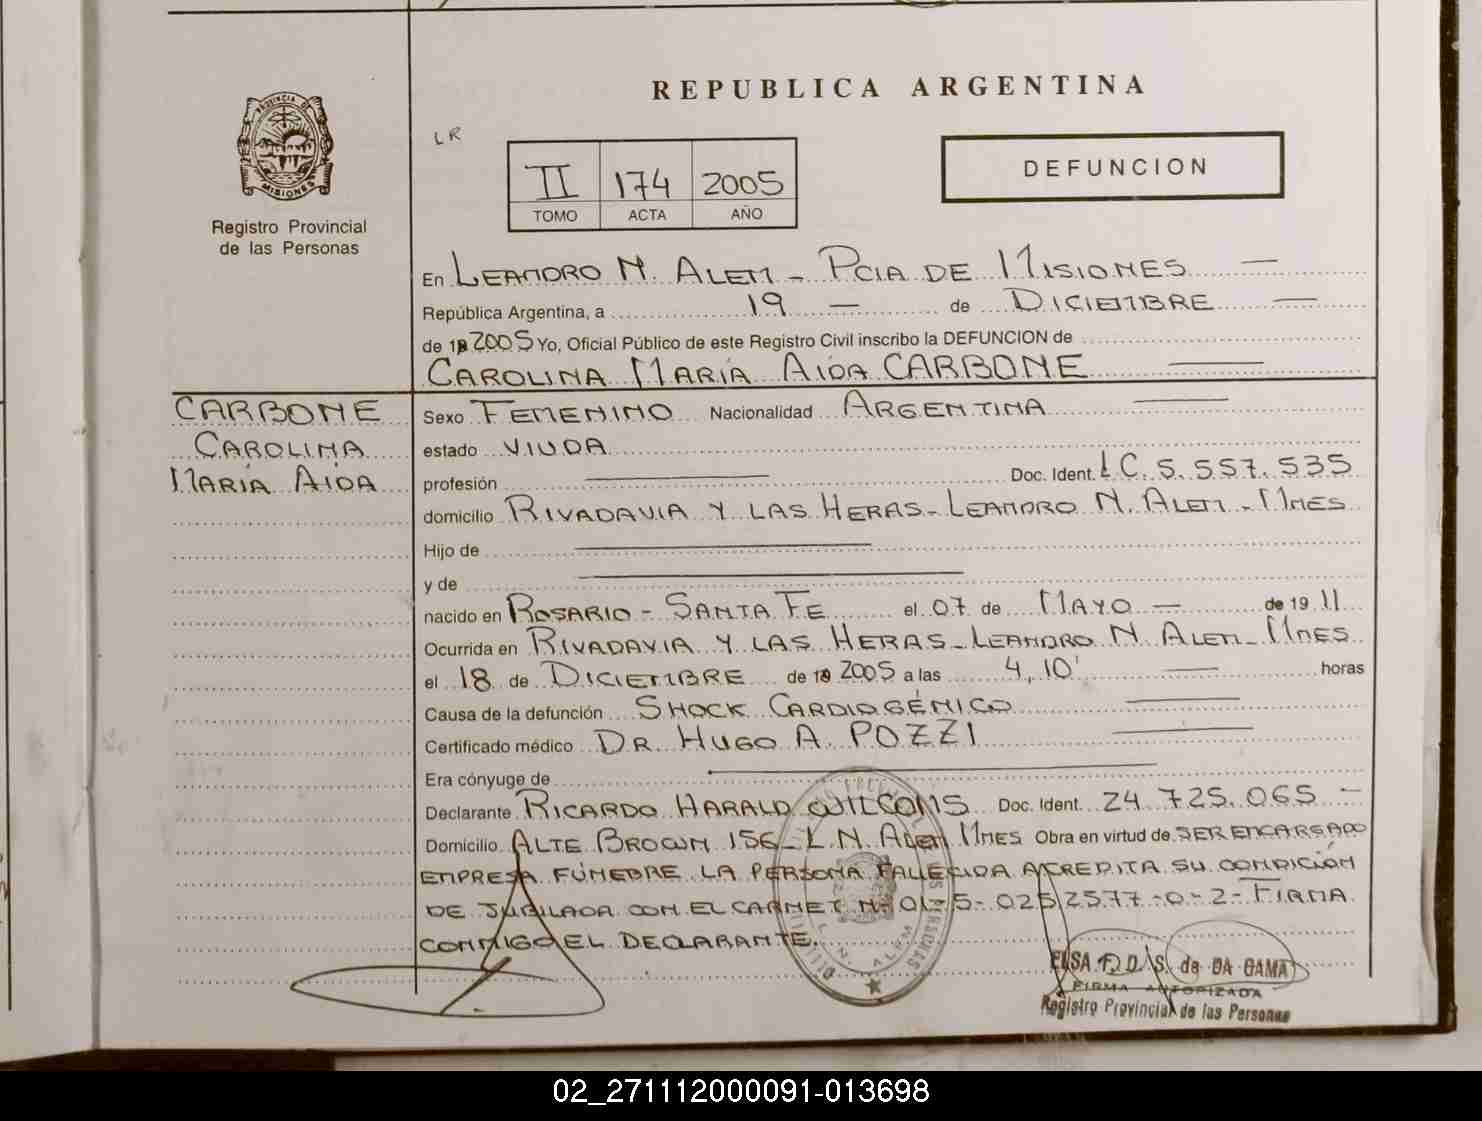 REPUBLICA ARGENTINA
LR
PROVINCIA DE
MISIONES
Registro Provincial
de las Personas
II 174 2005
TOMO ACTA AÑO
DEFUNCION
En LEANDRO N. ALEM - PCIA DE MISIONES —
República Argentina, a 19 — de DICIEMBRE —
de 2005 Yo, Oficial Público de este Registro Civil inscribo la DEFUNCION de
CAROLINA MARÍA AIDA CARBONE
CARBONE
CAROLINA
MARÍA AIDA
Sexo FEMENINO Nacionalidad ARGENTINA
estado VIUDA
profesión — Doc. Ident. L.C. 5.557.535
domicilio RIVADAVIA Y LAS HERAS - LEANDRO N. ALEM - MNES
Hijo de —
y de —
nacido en ROSARIO - SANTA FE el 07 de MAYO — de 19 11
Ocurrida en RIVADAVIA Y LAS HERAS - LEANDRO N. ALEM - MNES
el 18 de DICIEMBRE de 2005 a las 4,10' — horas
Causa de la defunción SHOCK CARDIOGÉNICO
Certificado médico DR. HUGO A. POZZI
Era cónyuge de —
Declarante RICARDO HARALD Doc. Ident. 24.725.065 -
Domicilio ALTE BROWN 156 - L.N. ALEM MNES Obra en virtud de SER ENCARGADO
EMPRESA FÚNEBRE. LA PERSONA FALLECIDA ACREDITA SU CONDICIÓN
DE JUBILADA CON EL CARNET Nº 01-5-0252577-0-2- FIRMA
CONMIGO EL DECLARANTE.
L.N. ALEM
ELSA F. D. S. de DA GAMA
FIRMA AUTORIZADA
Registro Provincial de las Personas
02_271112000091-013698